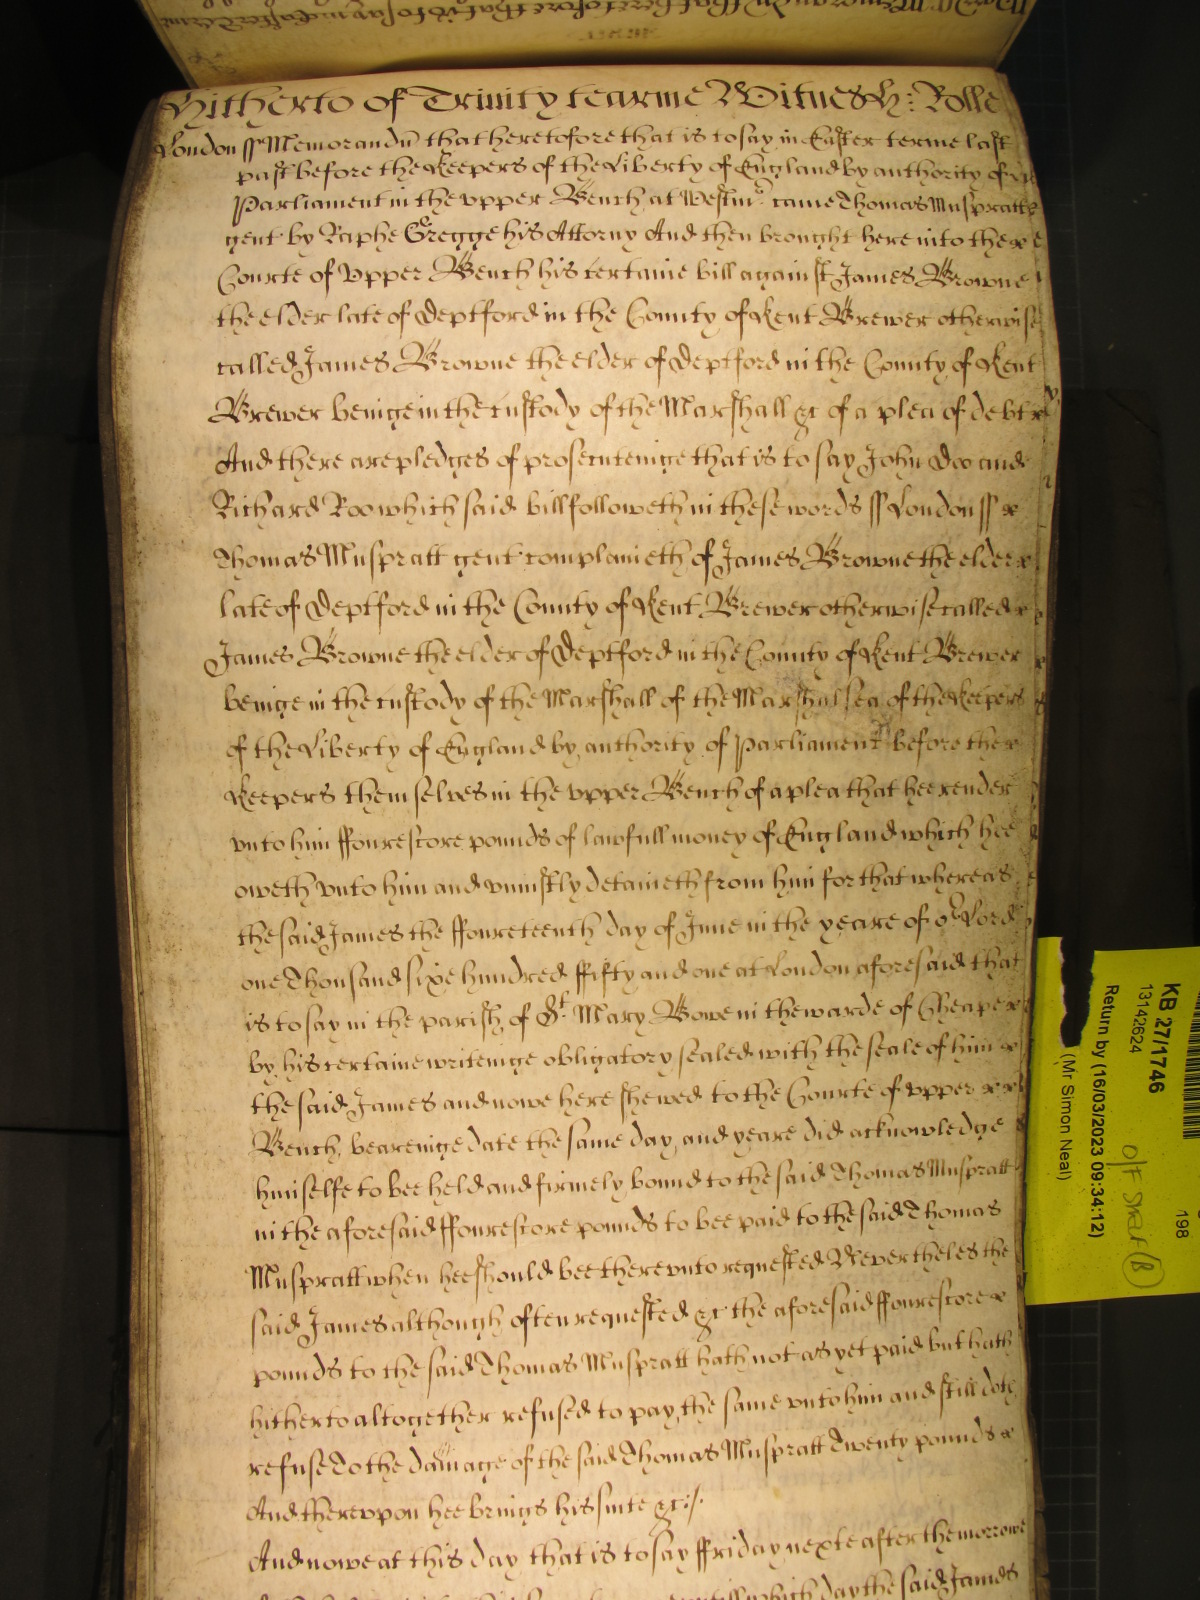 Hitherto of Trinity tearme Witnes H: Rolle
London ss Memorandu that heretofore that is to say in Easter terme last
past before the Keepers of the Liberty of England by authority of
Parliament in the vpper Bench at Westmr came Thomas Muspratt
gent by Raphe Gregge his Attorny And then brought here into the
Courte of vpper Bench his certaine bill against James Browne
the elder late of Deptford in the County of Kent Brewer otherwise
called James Browne the elder of Deptford in the County of Kent
Brewer beinge in the custody of the Marshall &c of a plea of debt
And there are pledges of prosecuteinge that is to say John Doo and
Richard Roo which said bill followeth in these words ss London ss
Thomas Muspratt gent complaineth of James Browne the elder
late of Deptford in the County of Kent Brewer otherwise called
James Browne the elder of Deptford in the County of Kent Brewer
beinge in the custody of the Marshall of the Marshalsea of the Keepers
of the Liberty of England by authority of Parliament before the
Keepers themselves in the vpper Bench of a plea that hee render
vnto him ffourescore pounds of lawfull money of England which hee
oweth vnto him and vniustly detaineth from him for that whereas
the said James the ffoureteenth day of June in the yeare of or Lord
one Thousand sixe hundred ffifty and one at London aforesaid that
is to say in the parish of St Mary Bowe in the warde of Cheape
by his certaine writeinge obligatory sealed with the seale of him
the said James and nowe here shewed to the Courte of vpper
Bench beareinge date the same day and yeare did acknowledge
himselfe to bee held and firmely bound to the said Thomas Muspratt
in the aforesaid ffourescore pounds to bee paid to the said Thomas
Muspratt when hee should bee therevnto requested Neverthelesthe
said James although often requested &c the aforesaid ffourescore
pounds to the said Thomas Muspratt hath not as yet paid but hath
hitherto altogether refused to pay the same vnto him and still doth
refuse To the damage of the said Thomas Muspratt Twenty pounds
And therevpon hee brings his suite &c:/.
And nowe at this day that is to say ffriday nexte after the morrowe
vntill which day the said James
KB 27/1746
13142624
Return by (16/03/2023 09:34:12)
(Mr Simon Neal)
198